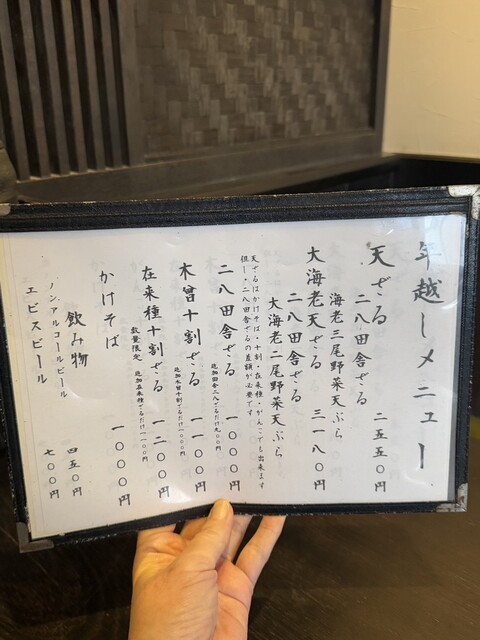 年越しメニュー
天ざる 二五五〇円
二八田舎ざる
海老三尾野菜天ぷら
大海老天ざる 三一八〇円
二八田舎ざる
大海老二尾野菜天ぷら
天ざるはかけそば・十割・在来種・がんこでも出来ます
但し・二八田舎ざるの差額が必要です
二八田舎ざる 一〇〇〇円
追加田舎二八ざるだけ九〇〇円
木曽十割ざる 一一〇〇円
追加木曽十割ざるだけ一〇〇〇円
在来種十割ざる 一二〇〇円
数量限定 追加在来種ざるだけ一一〇〇円
かけそば 一〇〇〇円
飲み物
ノンアルコールビール 四五〇円
エビスビール 七〇〇円